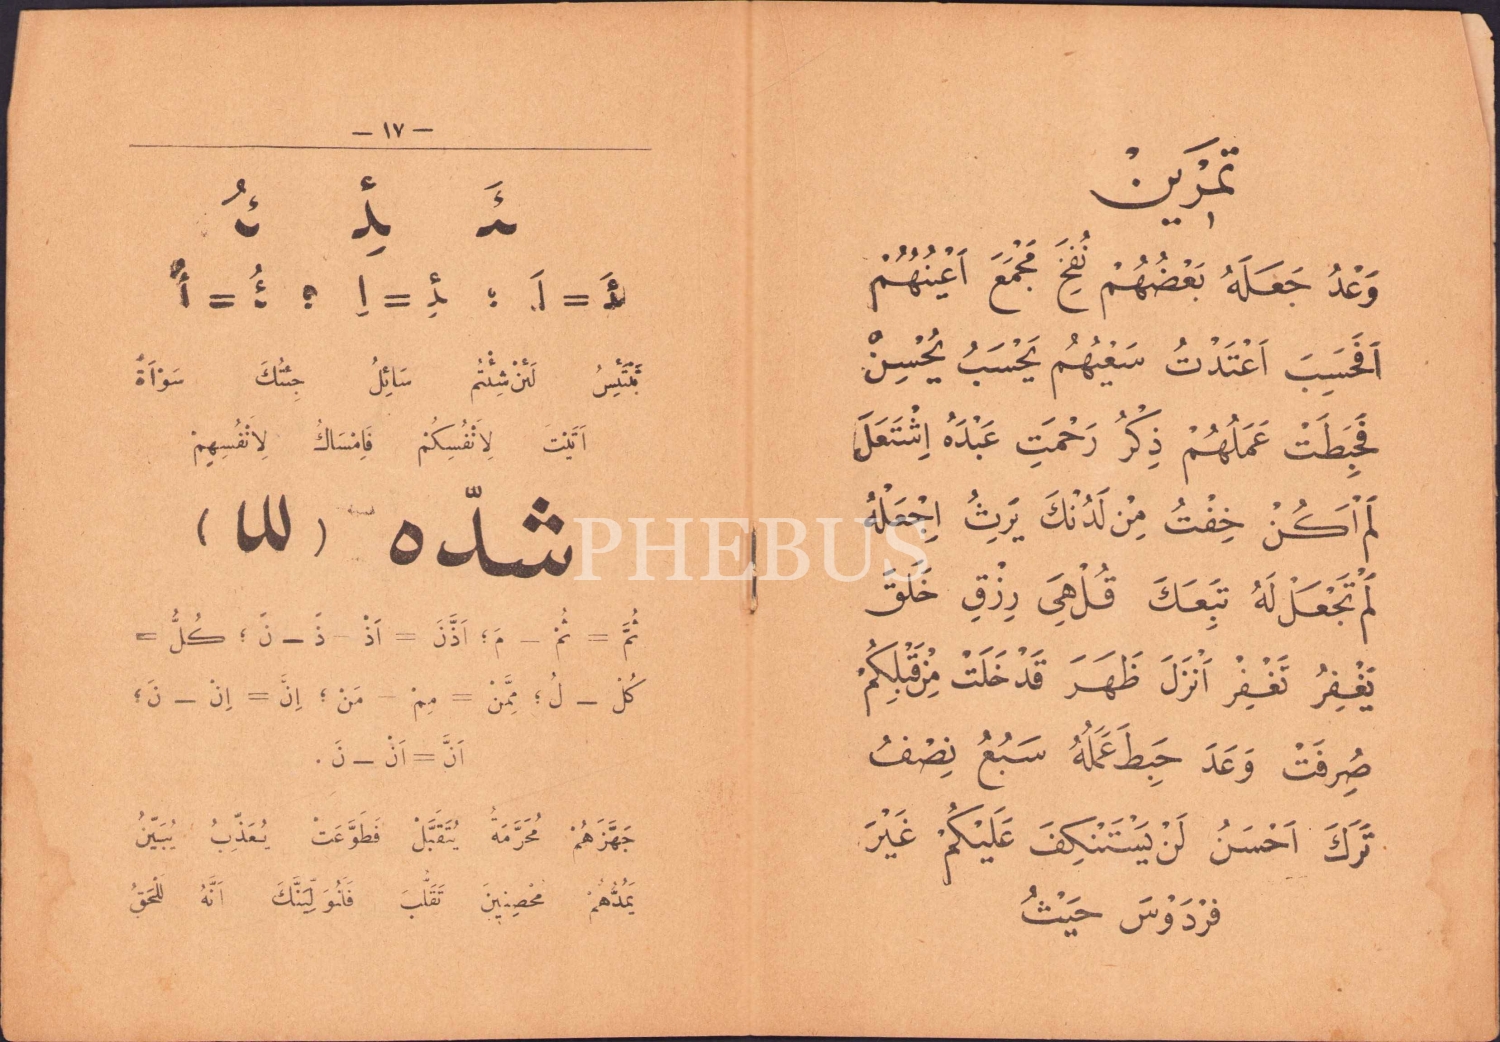 تَمْرِينْ
وَعْدُ جَعَلَهُ بَعْضُهُمْ نُفِخَ مَجْمَعَ اَعْيُنُهُمْ
اَفَحَسِبَ اَعْتَدْتُ سَعْيُهُمُ يَحْسَبُ يُحْسِنُ
فَحَبِطَتْ عَمَلُهُمْ ذِكْرُ رَحْمَتِ عَبْدَهُ اِشْتَعَلَ
لَمْ اَكُنْ خِفْتُ مِنْ لَدُنْكَ يَرِثُ اِجْعَلْهُ
لَمْ تَجْعَلْ لَهُ تَبِعَكَ قُلْ هِيَ رِزْقِ خَلَقَ
يَغْفِرُ تَغْفِرْ اَنْزَلَ ظَهَرَ قَدْ خَلَتْ مِنْ قَبْلِكُمْ
صُرِفَتْ وَعَدَ حَبِطَ عَمَلُهُ سَبُعُ نِصْفُ
تَرَكَ اَحْسَنُ لَنْ يَسْتَنْكِفَ عَلَيْكُمْ غَيْرَ
فِرْدَوْسَ حَيْثُ
— ١٧ —
ـئَـ ـئِـ ـئُـ
أَ = اَ ؛ ئِ = اِ ؛ ئُ = أُ
تَبْتَئِسْ لَئِنْ شِئْتُمْ سَائِلُ جِئْتُكَ سَوْاَةَ
اَتَيْتَ لِاَنْفُسِكُمْ فَاِمْسَاكُ لِاَنْفُسِهِمْ
شدّه ( للا )
ثُمَّ = ثُمْ — مَ ؛ اَذَّنَ = اَذْ — ذَ — نَ ؛ كُلُّ =
كُلْ — لُ ؛ مِمَّنْ = مِمْ — مَنْ ؛ اِنَّ = اِنْ — نَ ؛
اَنَّ = اَنْ — نَ .
جَهَّزَهُمْ مُحَرَّمَةُ يُتَقَبَّلْ فَطَوَّعَتْ يُعَذِّبُ يُبَيِّنُ
يَمُدُّهُمْ مُحْصِنِينَ تَقَلُّبَ فَلَنُوَلِّيَنَّكَ اَنَّهُ لَلْحَقُّ
PHEBUS